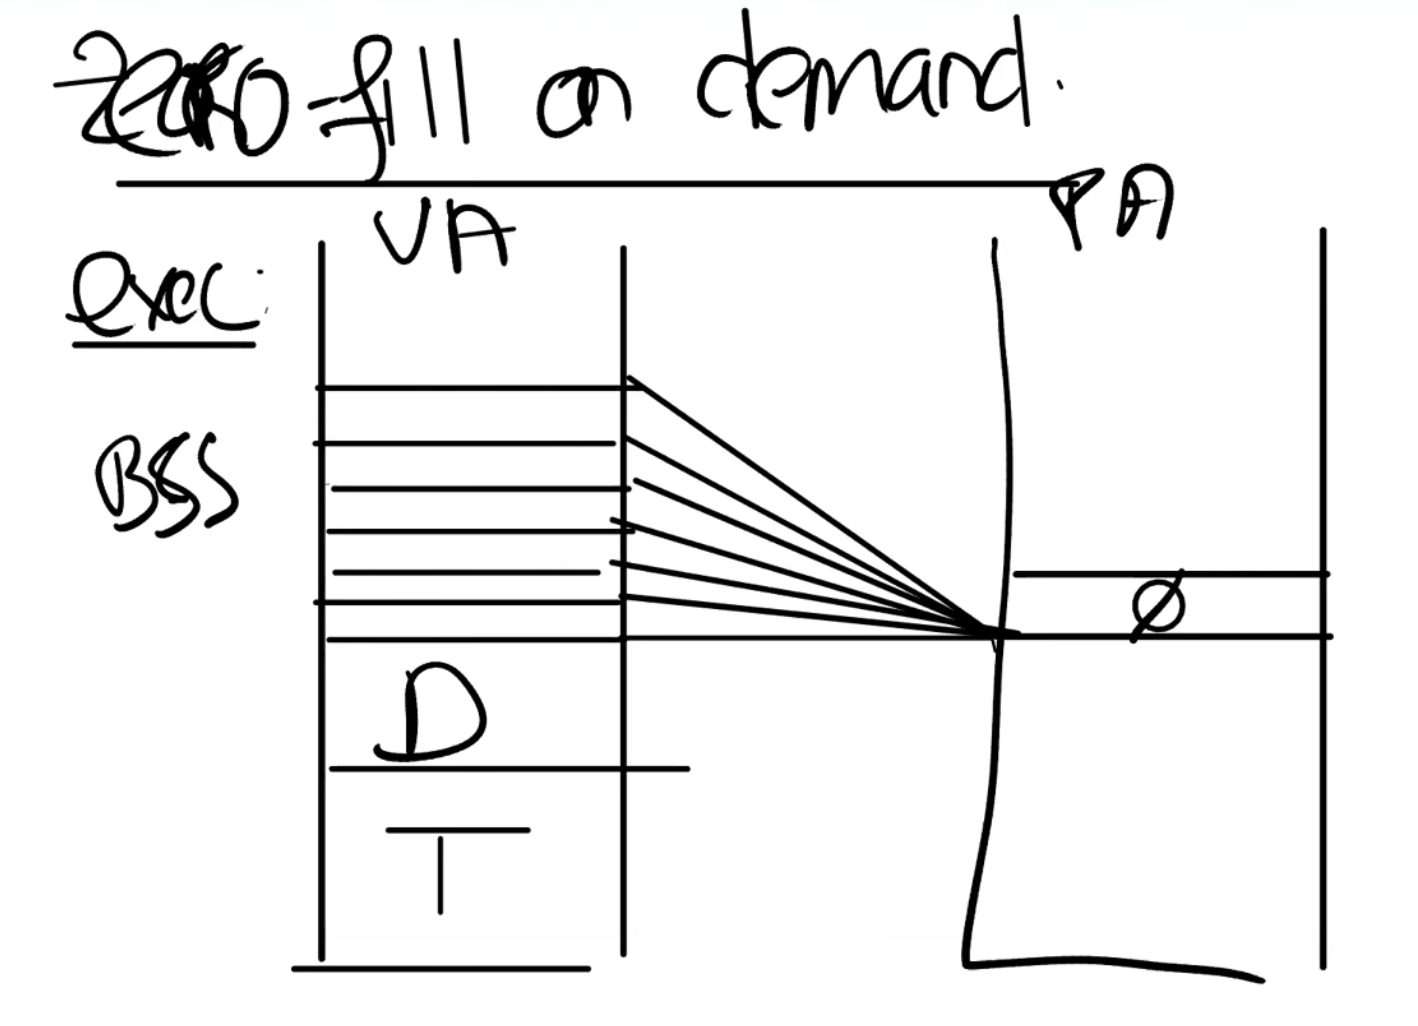 zero-fill on demand.
VA
PA
exec:
BSS
Ø
D
T